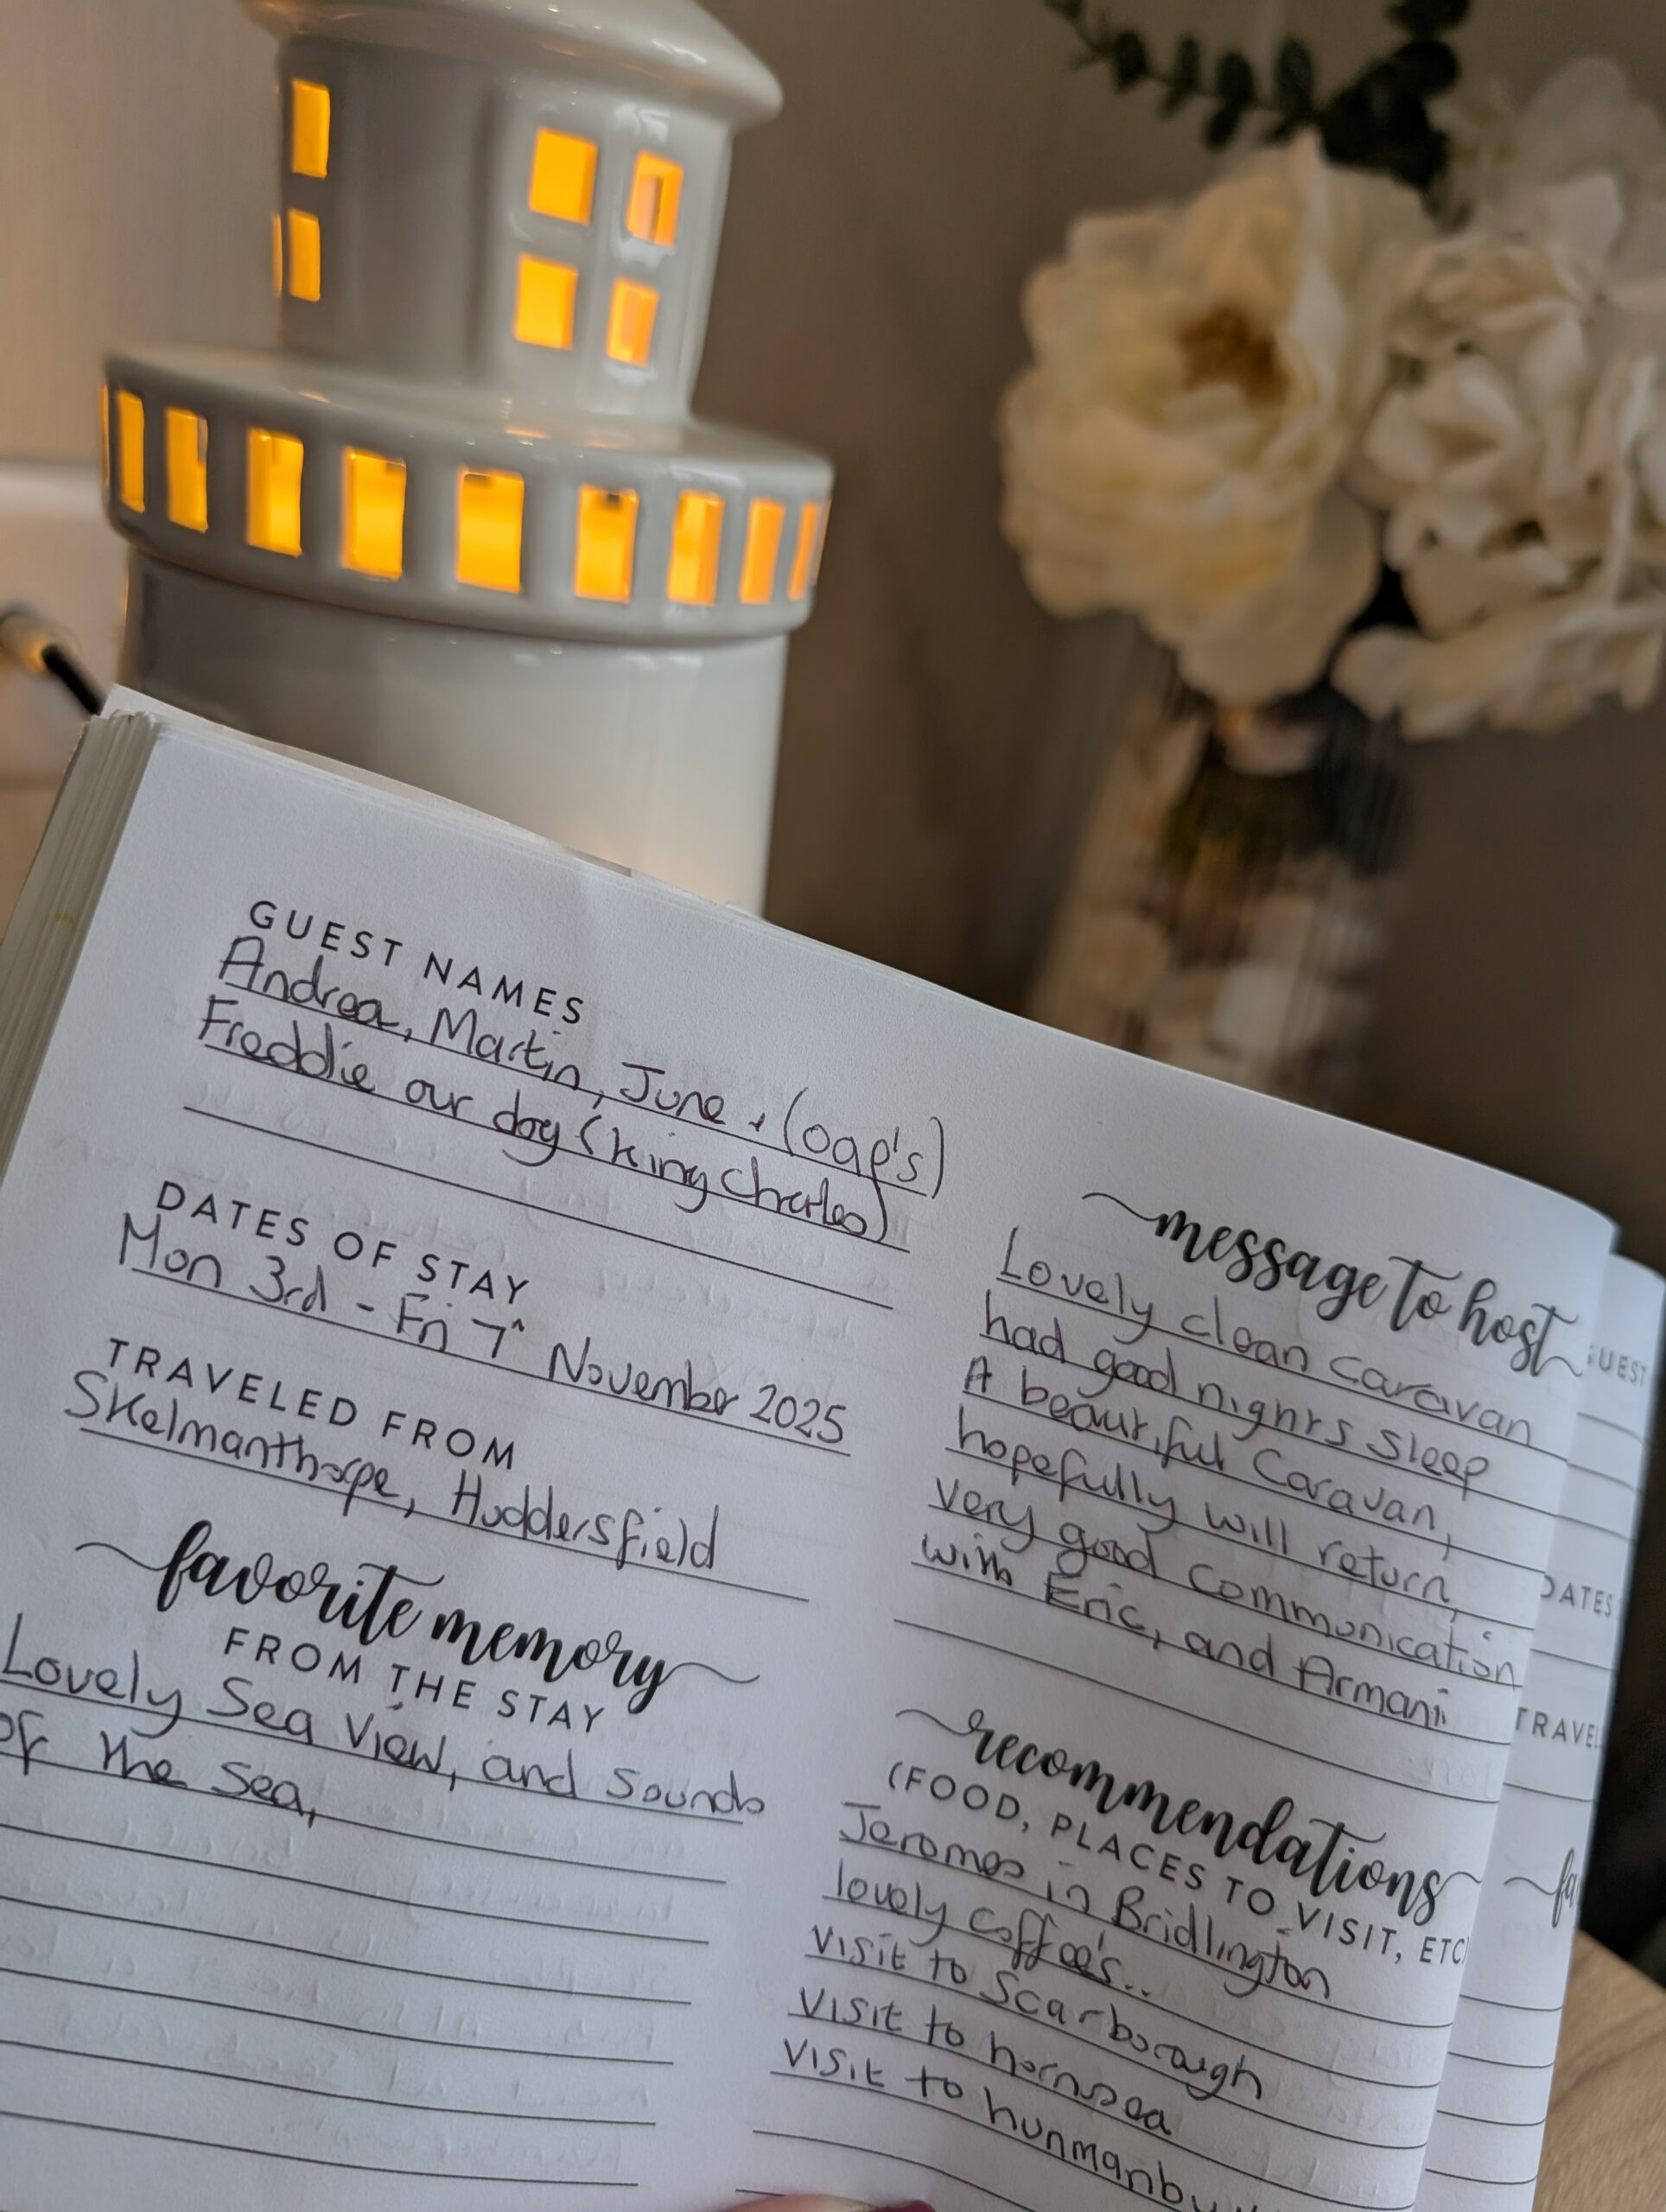 GUEST NAMES
Andrea, Martin, June + (oap's)
Freddie our dog (king charles)
DATES OF STAY
Mon 3rd - Fri 7th November 2025
TRAVELED FROM
Skelmanthorpe, Huddersfield
favorite memory
FROM THE STAY
Lovely Sea View, and Sounds
of the sea,
message to host
Lovely clean caravan
had good nights sleep
A beautiful Caravan,
hopefully will return,
very good communication
with Eric, and Armani
recommendations
(FOOD, PLACES TO VISIT, ETC)
Jeromes in Bridlington
lovely coffee's...
visit to Scarborough
visit to hornsea
visit to hunmanby
GUEST
DATES
TRAVEL
fa